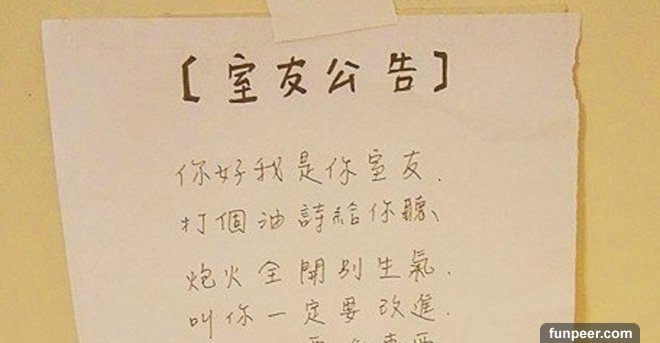 【室友公告】
你好我是你室友.
打個油詩給你聽、
炮火全開別生氣.
叫你一定要改進.
funpeer.com